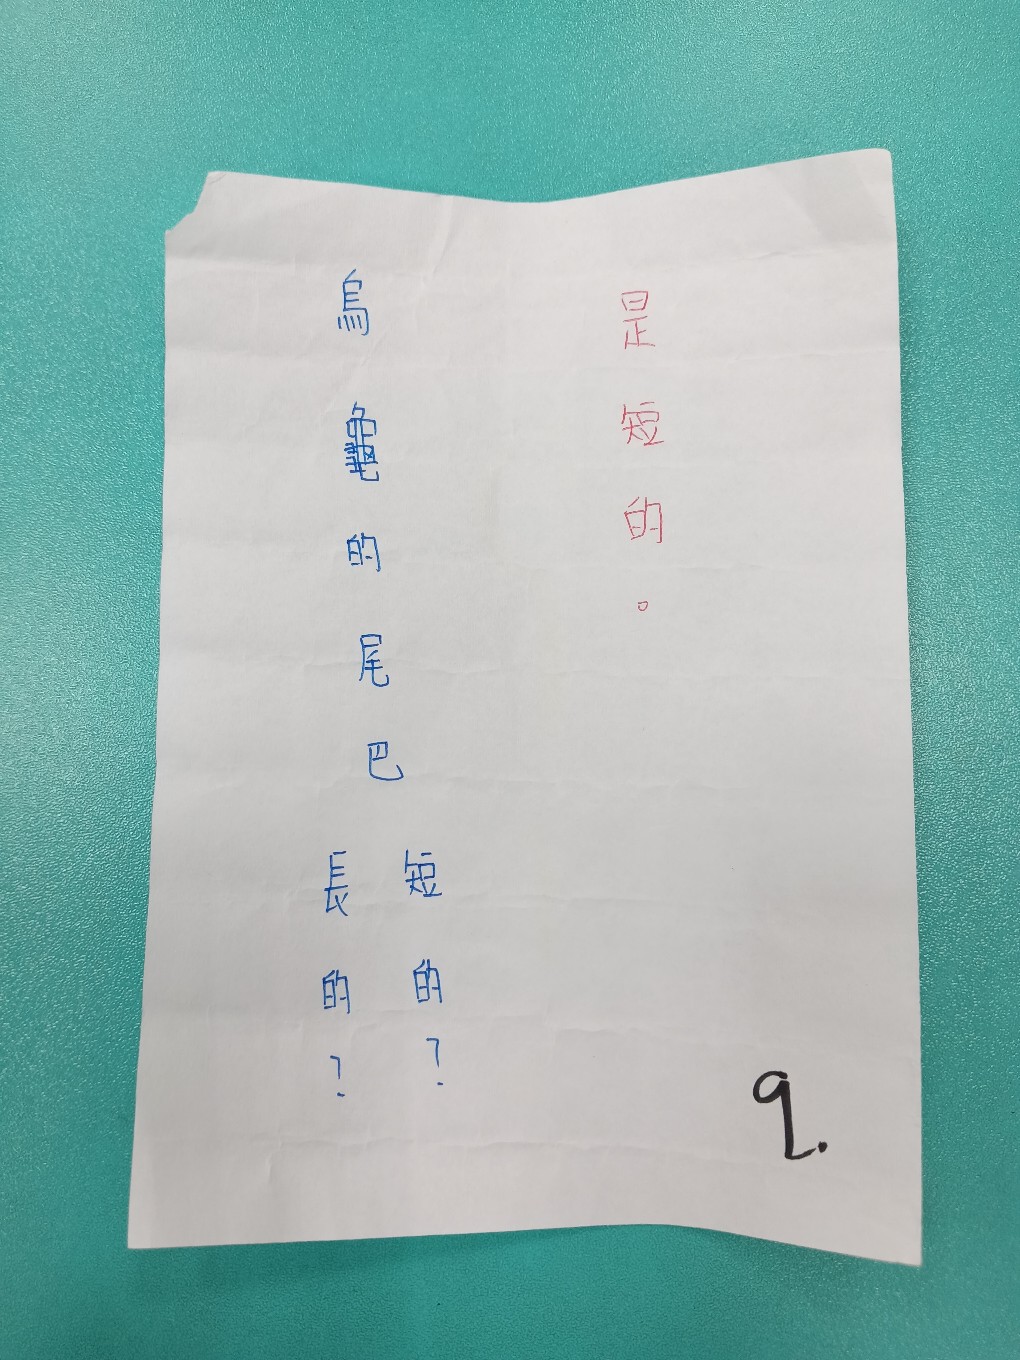 烏龜的尾巴
短的？
長的？
是短的。
9.